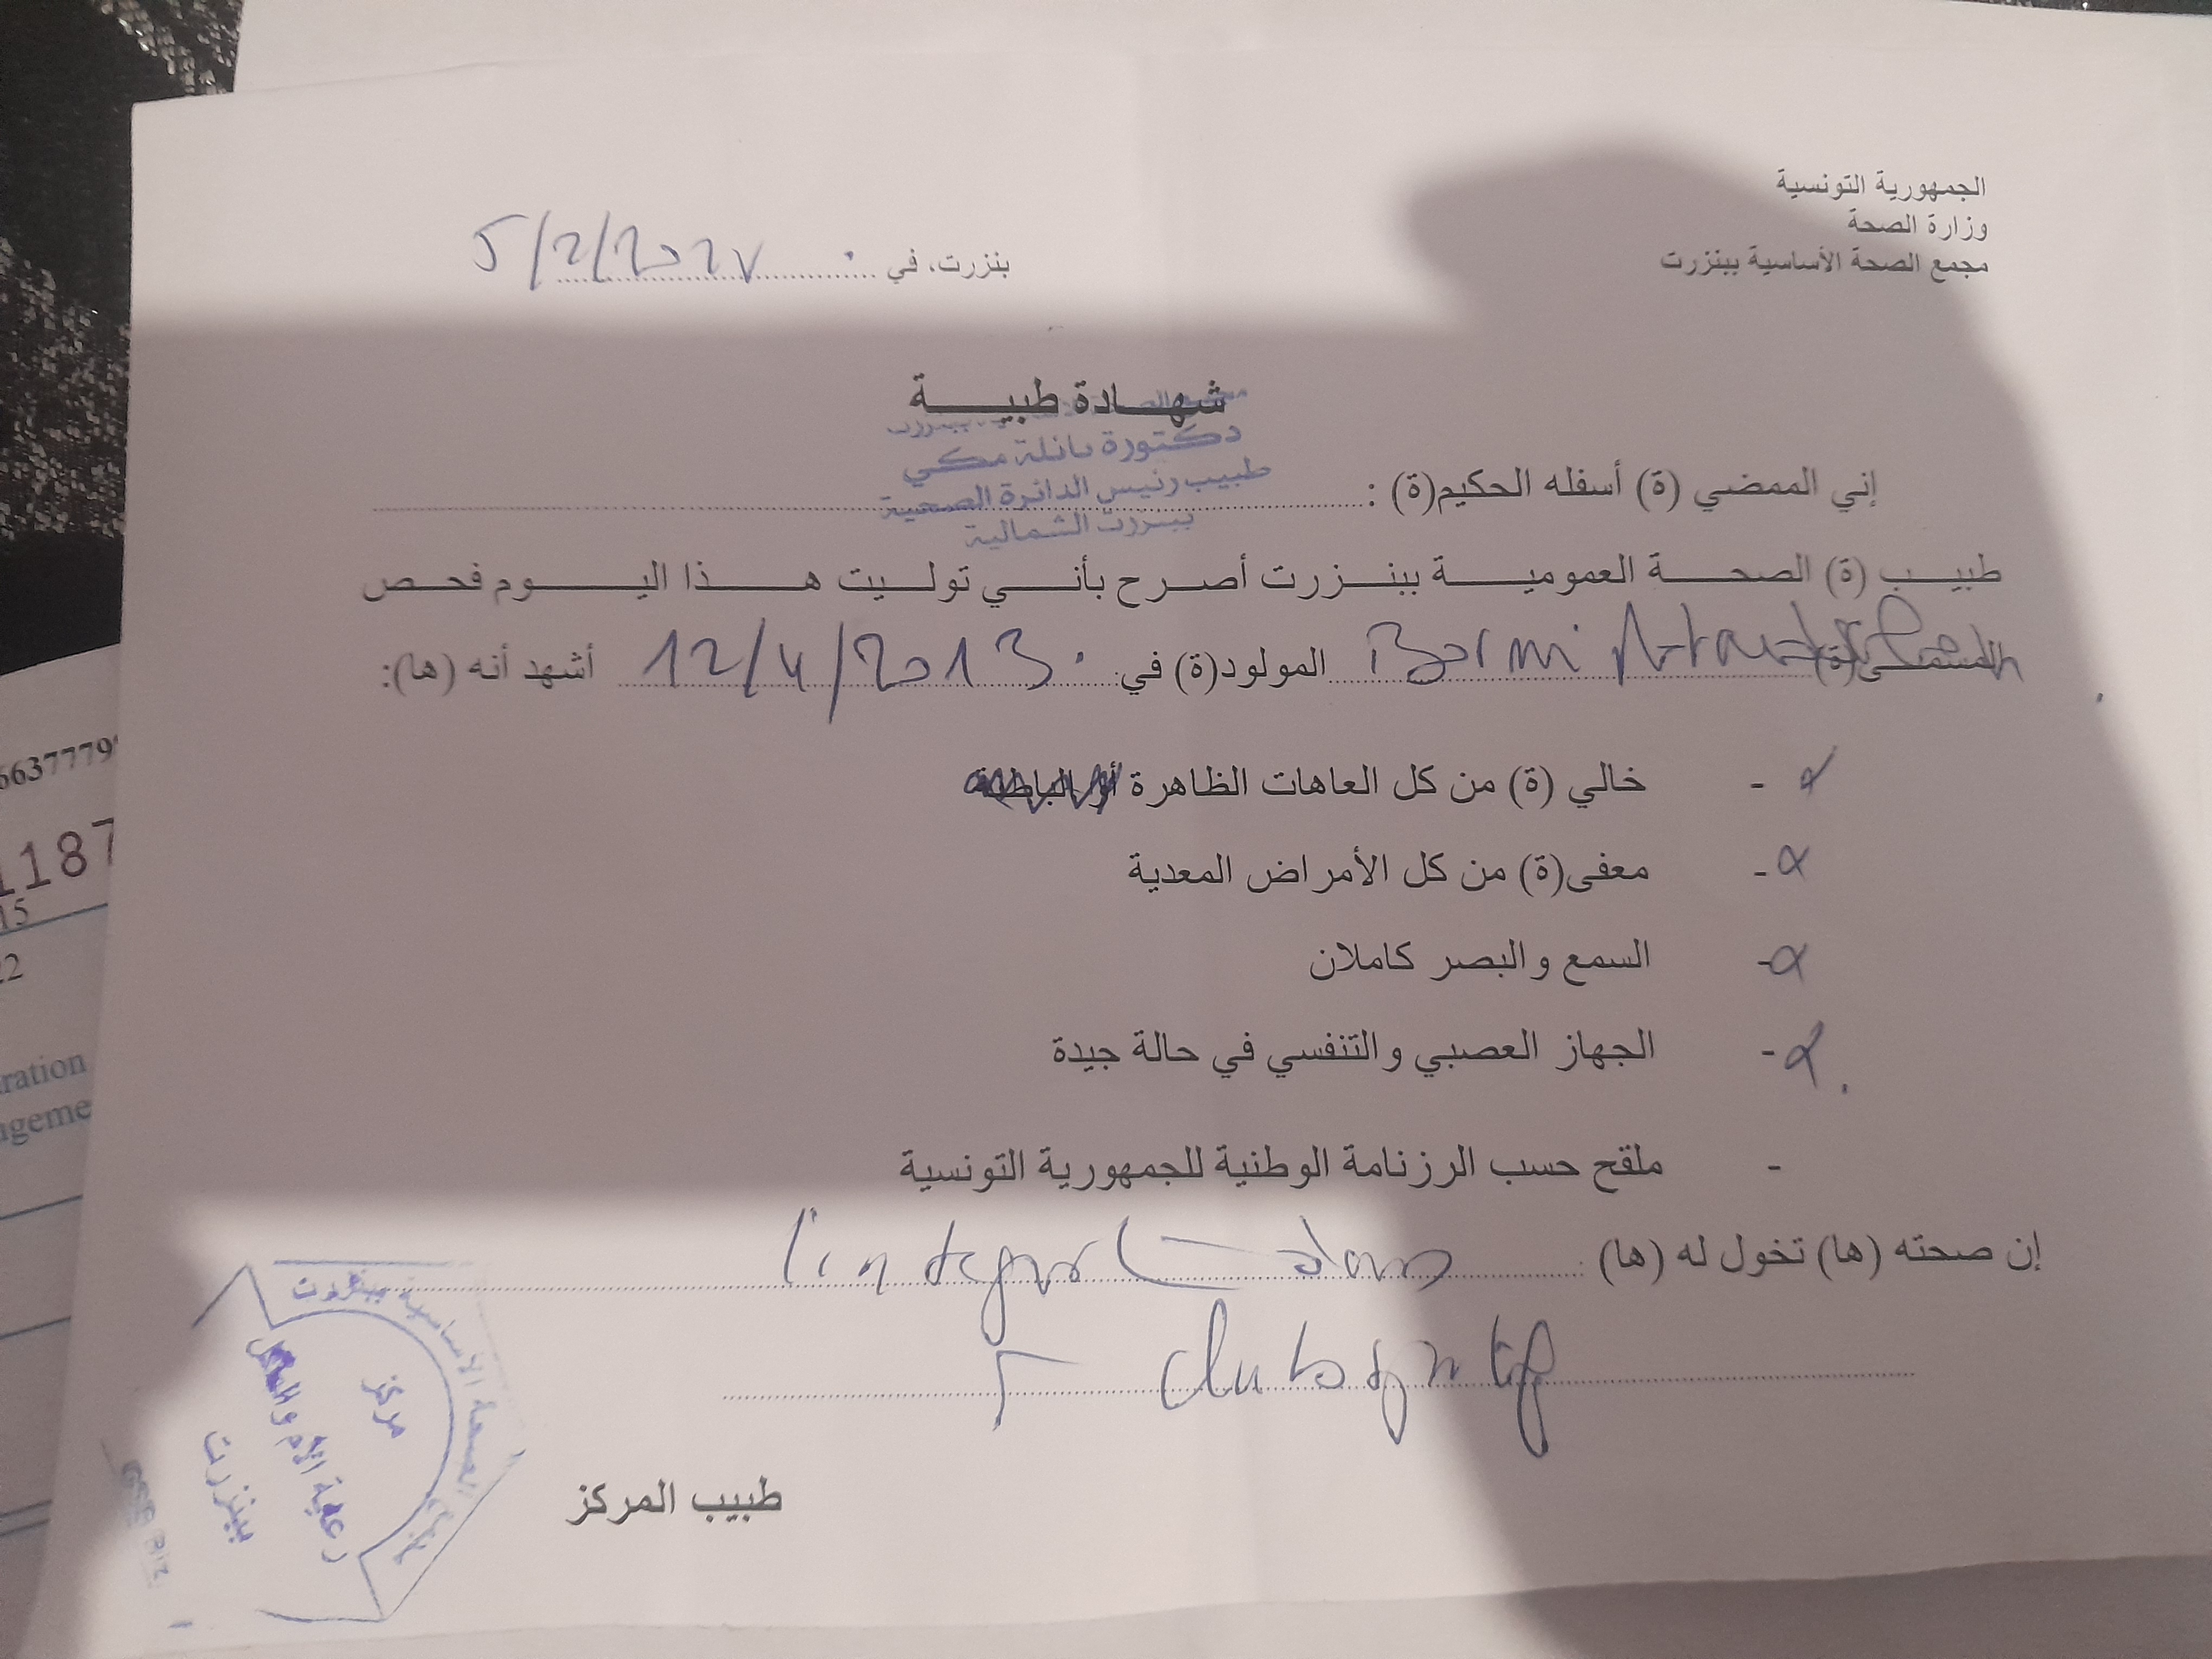 الجمهورية التونسية
وزارة الصحة
مجمع الصحة الأساسية ببنزرت
بنزرت، في 5/2/202
شهادة طبية
دكتورة نائلة مكي
طبيب رئيس الدائرة الصحية
ببنزرت الشمالية
إني الممضي (ة) أسفله الحكيم(ة) :
طبيب (ة) الصحة العمومية ببنزرت أصرح بأني توليت هذا اليوم فحص
المسمى(ة) المولود(ة) في: 12/4/2013 أشهد أنه (ها):
- خالي (ة) من كل العاهات الظاهرة
- معفى(ة) من كل الأمراض المعدية
- السمع والبصر كاملان
- الجهاز العصبي والتنفسي في حالة جيدة
- ملقح حسب الرزنامة الوطنية للجمهورية التونسية
إن صحته (ها) تخول له (ها) :
طبيب المركز
الصحة الأساسية ببنزرت
مركز
رعاية الأم والطفل
ببنزرت
6637779
1187
15
22
ration
ageme